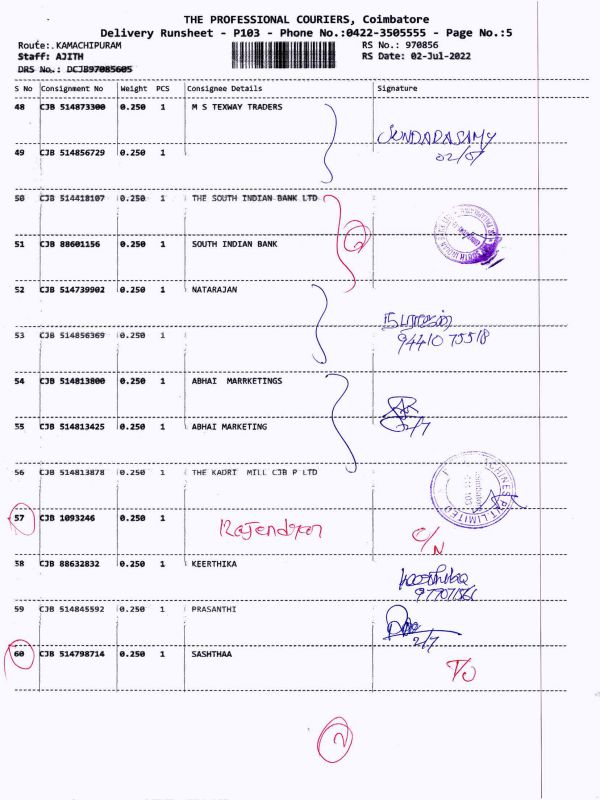 THE PROFESSIONAL COURIERS, Coimbatore
Delivery Runsheet - P103 - Phone No.:0422-3505555 - Page No.:5
Route:.KAMACHIPURAM RS No.: 970856
Staff: AJITH RS Date: 02-Jul-2022
DRS No.: DCJB97085605
S No Consignment No Weight PCS Consignee Details Signature
48 CJB 514873300 0.250 1 M S TEXWAY TRADERS
SUNDARASAMY
02/07
49 CJB 514856729 0.250 1
50 CJB 514418107 0.250 1 THE SOUTH INDIAN BANK LTD
2
51 CJB 88601156 0.250 1 SOUTH INDIAN BANK
52 CJB 514739902 0.250 1 NATARAJAN
நடராஜன்
94410 75518
53 CJB 514856369 0.250 1
54 CJB 514813800 0.250 1 ABHAI MARRKETINGS
2/7
55 CJB 514813425 0.250 1 ABHAI MARKETING
56 CJB 514813878 0.250 1 THE KADRI MILL CJB P LTD
57 CJB 1093246 0.250 1 Rajendran C/N
58 CJB 88632832 0.250 1 KEERTHIKA
Keerthika
59 CJB 514845592 0.250 1 PRASANTHI
2/7
60 CJB 514798714 0.250 1 SASHTHAA
2